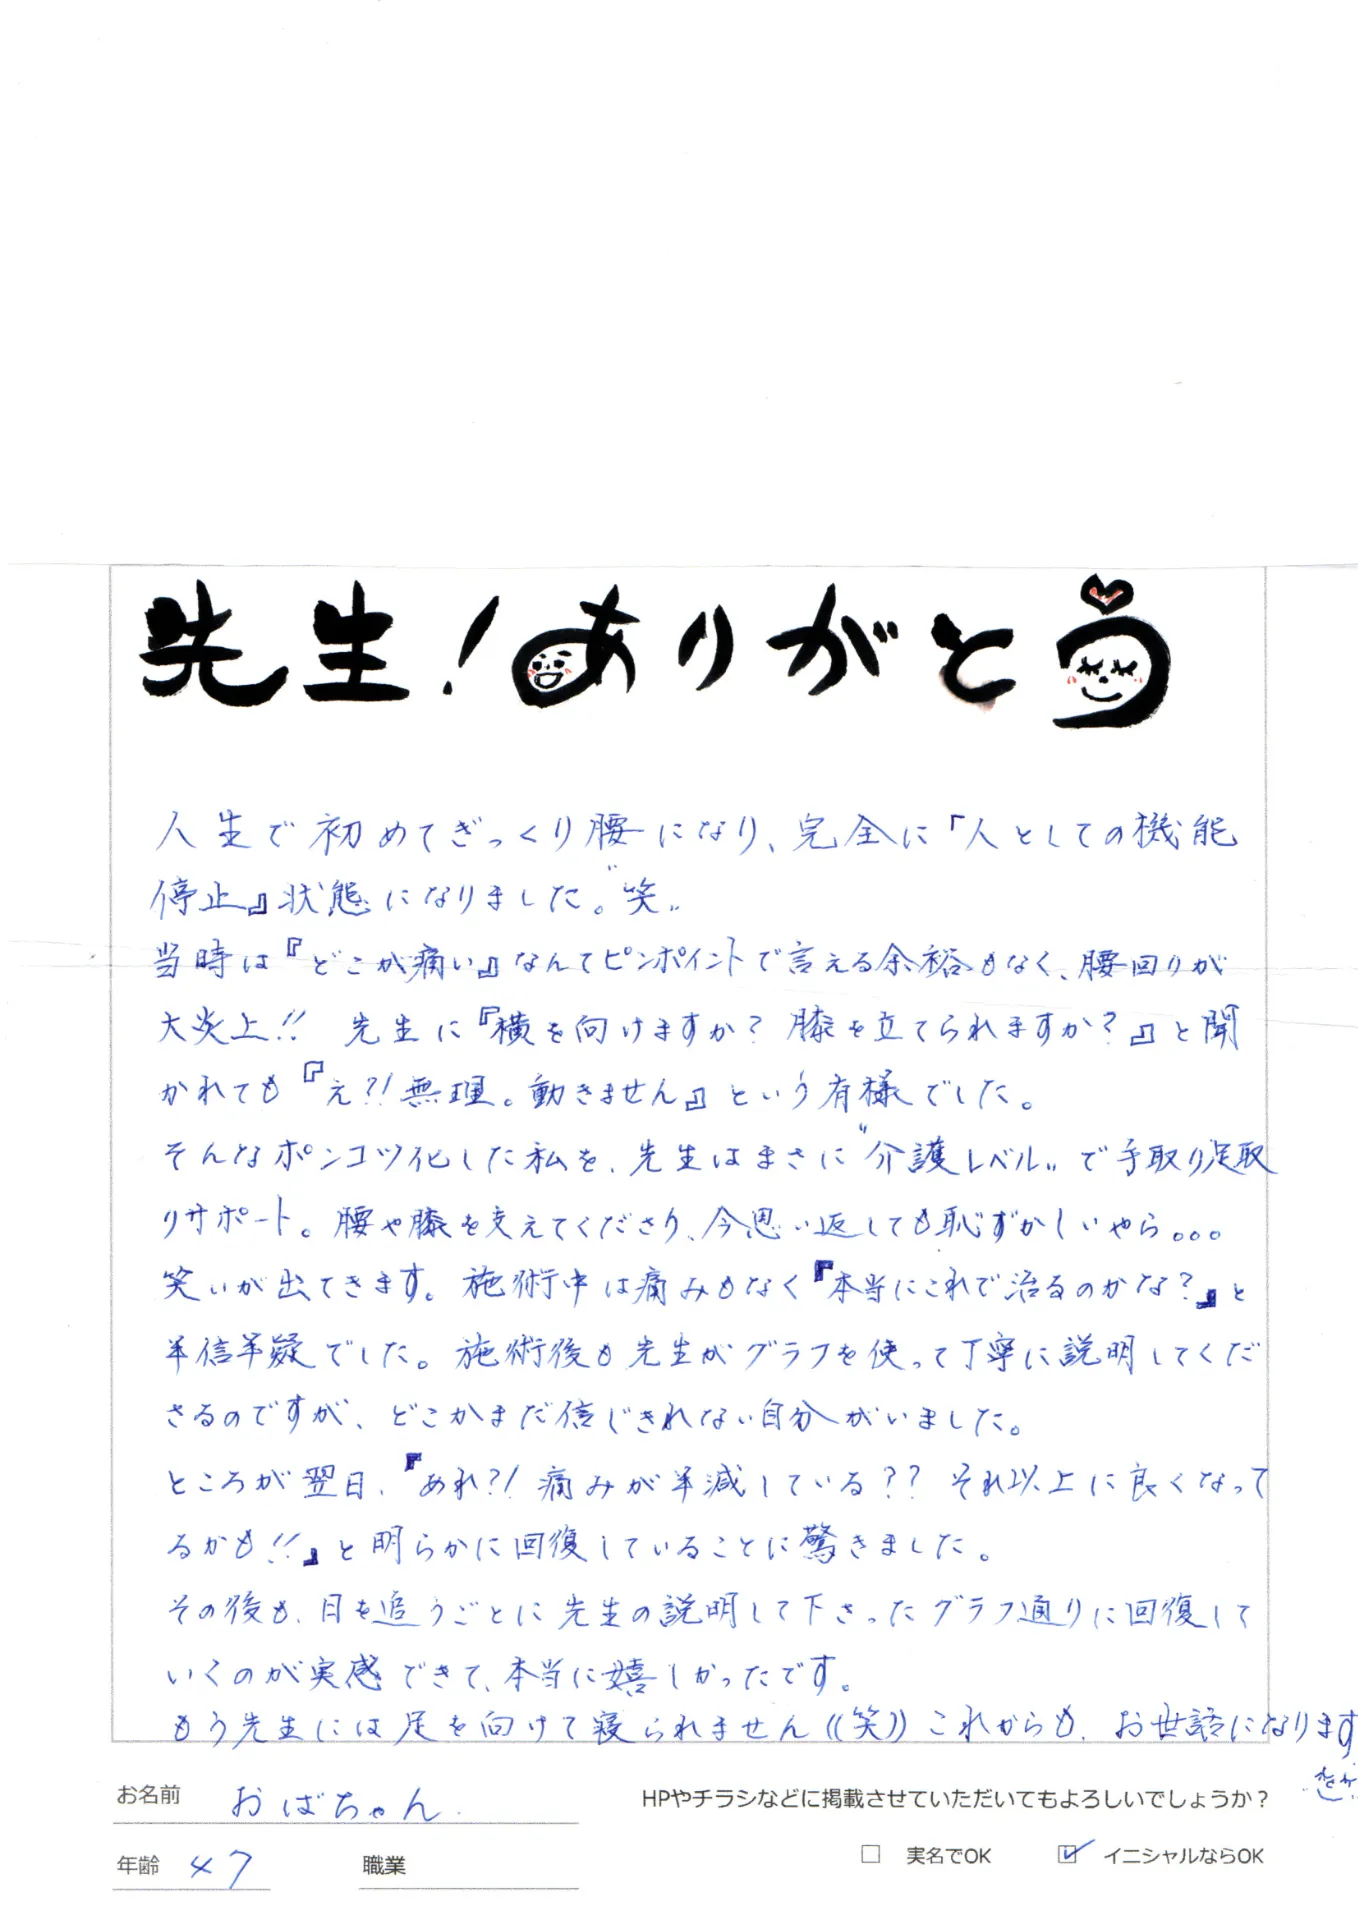 先生!ありがとう
人生で初めてぎっくり腰になり、完全に「人としての機能
停止』状態になりました。"笑"
当時は『どこが痛い』なんてピンポイントで言える余裕もなく、腰回りが
大炎上!! 先生に『横を向けますか? 膝を立てられますか?』と聞
かれても『え?!無理。動きません』という有様でした。
そんなポンコツ化した私を、先生はまさに"介護レベル"で手取り足取
りサポート。腰や膝を支えてくださり、今思い返しても恥ずかしいやら。。。
笑いが出てきます。施術中は痛みもなく『本当にこれで治るのかな?』と
半信半疑でした。施術後も先生がグラフを使って丁寧に説明してくだ
さるのですが、どこかまだ信じきれない自分がいました。
ところが翌日、『あれ?!痛みが半減している?? それ以上に良くなって
るかも!!』と明らかに回復していることに驚きました。
その後も、日を追うごとに先生の説明して下さったグラフ通りに回復して
いくのが実感できて、本当に嬉しかったです。
もう先生には足を向けて寝られません((笑)) これからも、お世話になります
お名前 おばちゃん.
HPやチラシなどに掲載させていただいてもよろしいでしょうか?
年齢 47 職業
□ 実名でOK ☑ イニシャルならOK